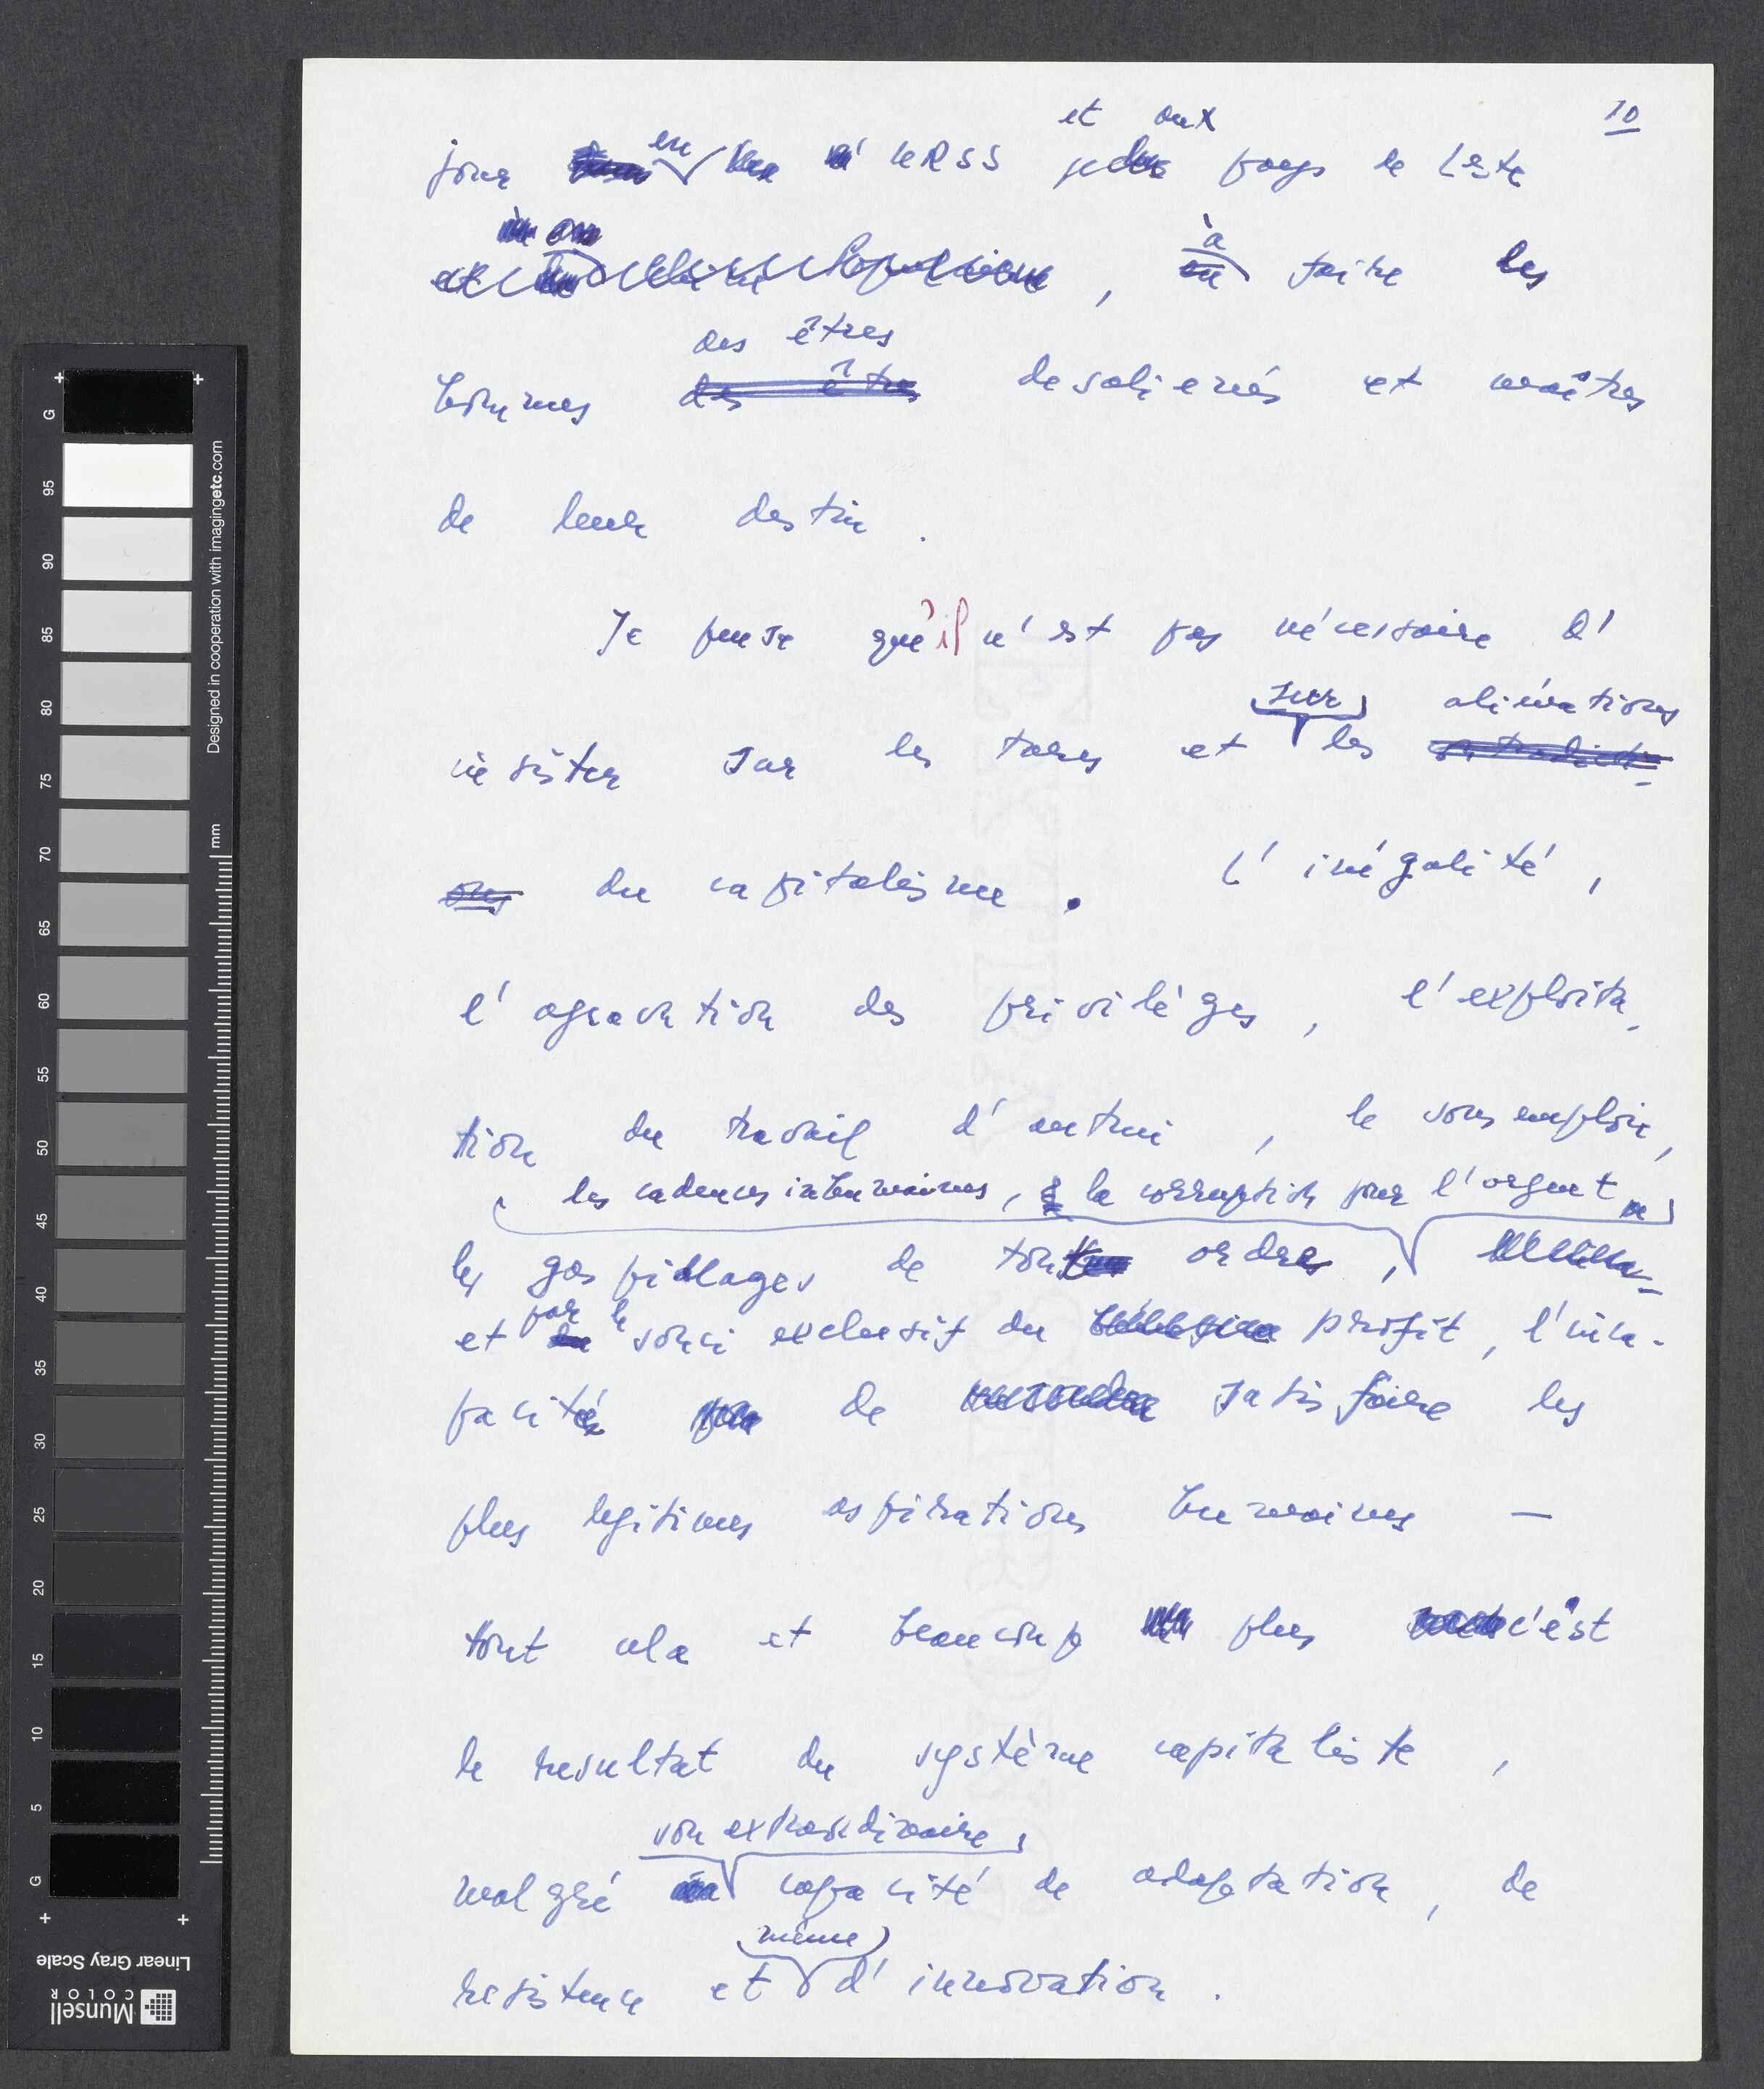 10
et aux
jour en URSS pays de l'Este
à
, faire les
des êtres
hommes des êtres desalienés et maîtres
de leur destin .
Je pense qu'il n'est pas nécessaire d'
sur alienations
insister sur les tares et les contradicti-
ons du capitalisme . L'inégalité ,
l'agravation des privilèges , l'exploita-
tion du travail d'autrui , le sous emploi,
les cadences inhumaines, la corruption par l'argent
les gaspillages de tout ordres ,
et par le souci exclusif du profit, l'inca-
pacité de satisfaire les
plus legitimes aspirations humaines —
tout cela et beaucoup plus c'est
le resultat du système capitaliste ,
son extraordinaire
malgré capacité de adaptation, de
même
resistence et d'innovation .
Designed in cooperation with imagingetc.com
mm
G
95
90
85
80
75
70
65
60
55
50
45
40
35
30
25
20
15
10
5
G
Linear Gray Scale
Munsell
COLOR